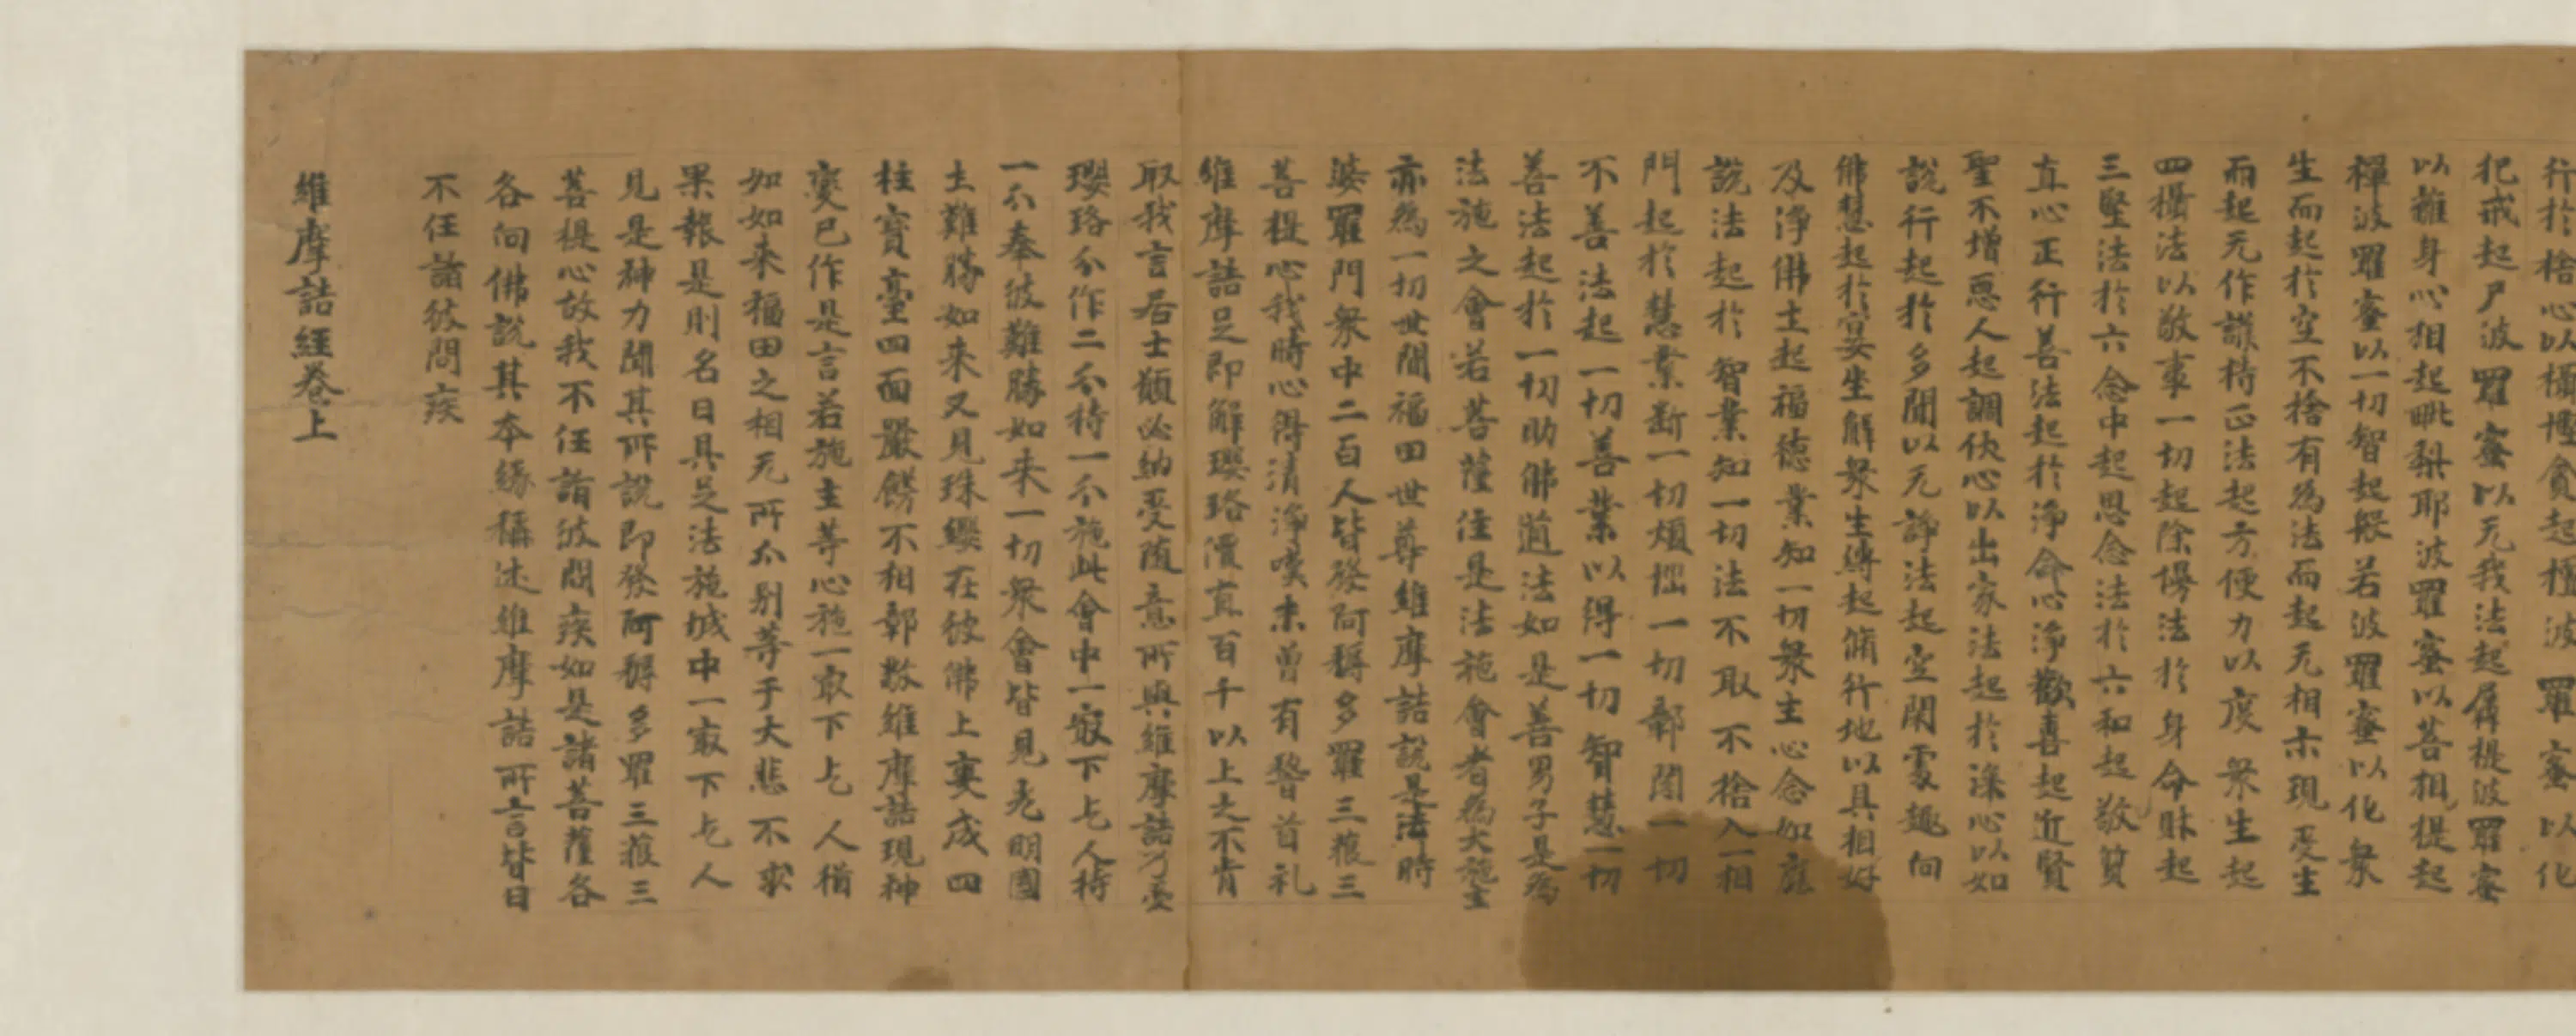 行於捨心以攝慳貪起檀波羅蜜以化
犯戒起尸波羅蜜以无我法起羼提波羅蜜
以離身心相起毗梨耶波羅蜜以菩相提起
禪波羅蜜以一切智起般若波羅蜜以化衆
生而起於空不捨有為法而起无相示現受生
而起无作護持正法起方便力以度衆生起
四攝法以敬事一切起除慢法於身命財起
三堅法於六念中起思念法於六和起敬質
直心正行善法起於淨命心淨歡喜起近賢
聖不增惡人起調伏心以出家法起於深心以如
說行起於多聞以无諍法起空閑處趣向
佛慧起於宴坐解衆生縛起脩行地以具相好
及淨佛土起福德業知一切衆生心念如應
說法起於智業知一切法不取不捨入一相
門起於慧業斷一切煩惱一切鄣閡一切
不善法起一切善業以得一切智慧一切
善法起於一切助佛道法如是善男子是為
法施之會若菩薩住是法施會者為大施主
亦為一切世間福田世尊維摩詰說是法時
婆羅門衆中二百人皆發阿耨多羅三藐三
菩提心我時心得清淨嘆未曾有稽首礼
維摩詰足即解瓔珞價直百千以上之不肯
取我言居士願必納受随意所與維摩詰乃受
瓔珞分作二分持一分施此會中一寂下乞人持
一分奉彼難勝如来一切衆會皆見光明國
土難勝如来又見珠纓在彼佛上變成四
柱寶臺四面嚴餝不相鄣蔽維摩詰現神
變已作是言若施主等心施一寂下乞人猶
如如来福田之相无所分别等于大悲不求
果報是則名曰具足法施城中一寂下乞人
見是神力聞其所說即發阿耨多羅三藐三
菩提心故我不任詣彼問疾如是諸菩薩各
各向佛說其夲緣稱述維摩詰所言皆曰
不任詣彼問疾
維摩詰經卷上